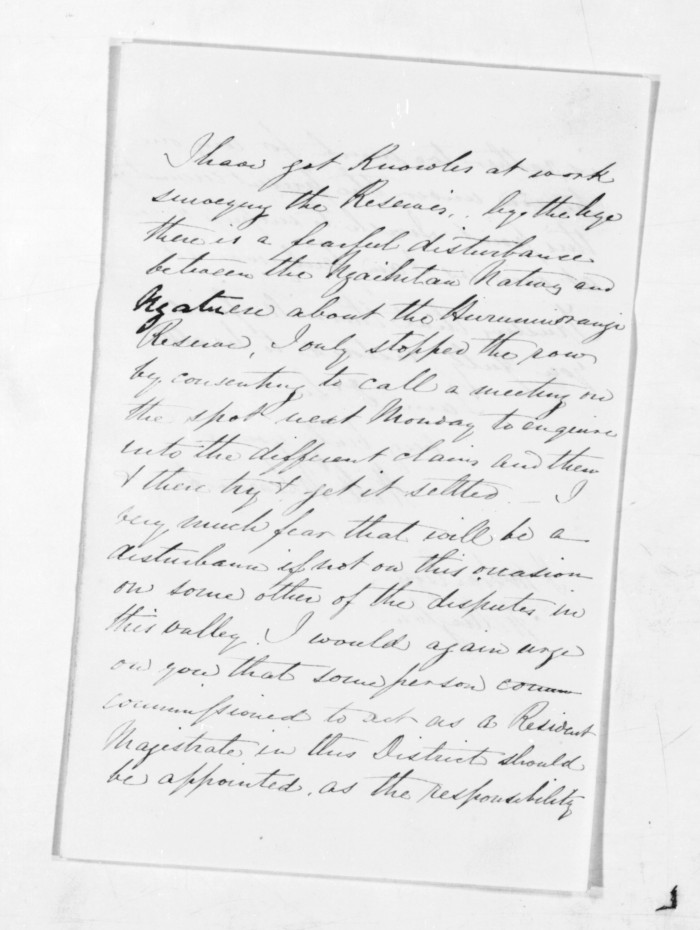 I have got Knowles at work
surveying the Reserves, by the bye
there is a fearful disturbance
between the Ngaikitau Natives and
Ngatuere about the Hurunuiorangi
Reserve, I only stopped the row
by consenting to call a meeting on
the spot next Monday to enquire
into the different claims and then
& there try & get it settled — I
very much fear that will be a
disturbance if not on this occasion
on some other of the disputes in
this valley. I would again urge
on you that some person comm
commissioned to act as a Resident
Magistrate in this District should
be appointed, as the responsibility